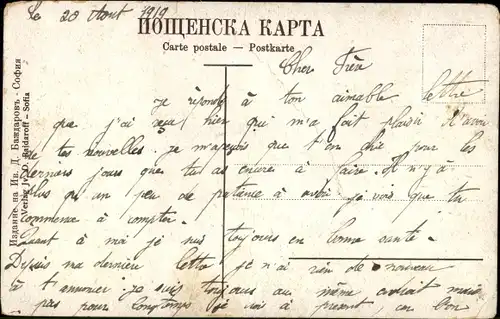 le 20 Aout 1919
ПОЩЕНСКА КАРТА
Carte postale — Postkarte
Cher Frère
Je réponds à ton aimable lettre
que j'ai reçu hier qui m'a fait plaisir d'avoir
de tes nouvelles. Je m'aperçois que pour les
derniers jours que tu as encore à faire. Il n'y a
plus qu'un peu de patience à avoir je vois que tu
commence à compter.
Quant à moi je suis toujours en bonne santé.
Depuis ma dernière lettre je n'ai rien de nouveau
à t'annoncer. je suis toujours au même endroit mais
pas pour longtemps je vais à présent en bon
Издание на Ив. Д. Баждаровъ - София
Verlag Iv. D. Bajdaroff - Sofia